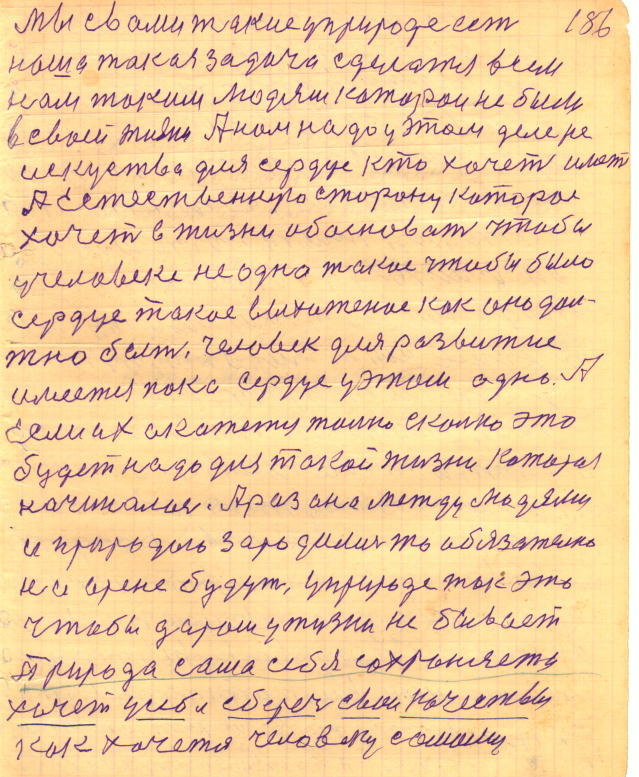 мы с вами такие у природе ест 186
наша такая задача сделатя всем
нам таким людям каторои не были
в своей жизни А нам надо у этом деле не
искуства для сердце кто хочет имет
А Естественную сторону которое
хочет в жизни обосноват чтобы
у человеке не одна такое чтобы было
сердце такое выхоженое как оно дол-
жно быт, человек для развитие
имеется пока сердце у этом одно. А
Если их окажется толко сколко это
будет надо для такой жизни каторая
начиналая. А раз она между людями
и природою зародилися то обязателно
на арене будут, у природе так это
чтобы даром у жизни не бывает
Природа сама себя сохраняета
хочет у себя сберечь свои качествы
как хочется человеку самому